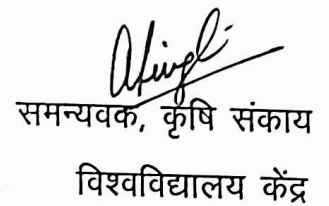 समन्यवक, कृषि संकाय
विश्वविद्यालय केंद्र